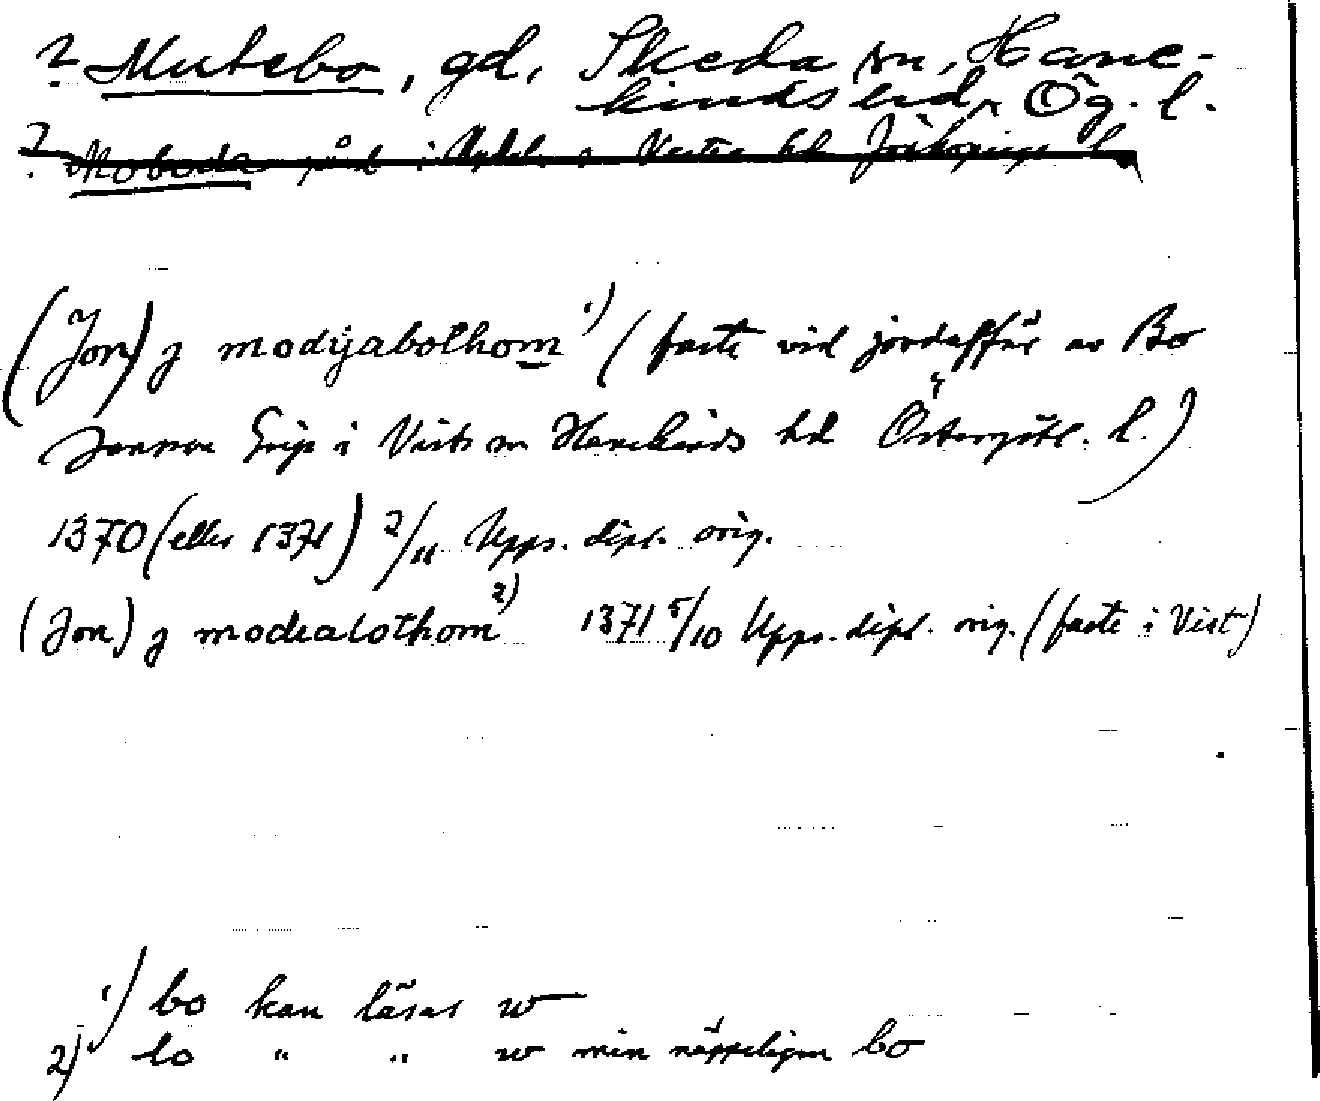 ? Mutebo, gd, Skeda sn, Hane-
kinds hd, Ög. l.
? Moboda i Vestra hd Jönköpings l.
(Jon) j modijabothom 1) (faste vid jordaffär av Bo
Jonsson Grip i Vists sn Hanekinds hd Östergötl. l.)
1370 (eller 1371) 2/11 Upps. dipl. orig.
(Jon) j modialothom 2) 1371 5/10 Upps. dipl. orig. (faste i Vist)
1) bo kan läsas w
2) lo " " w men näppeligen bo